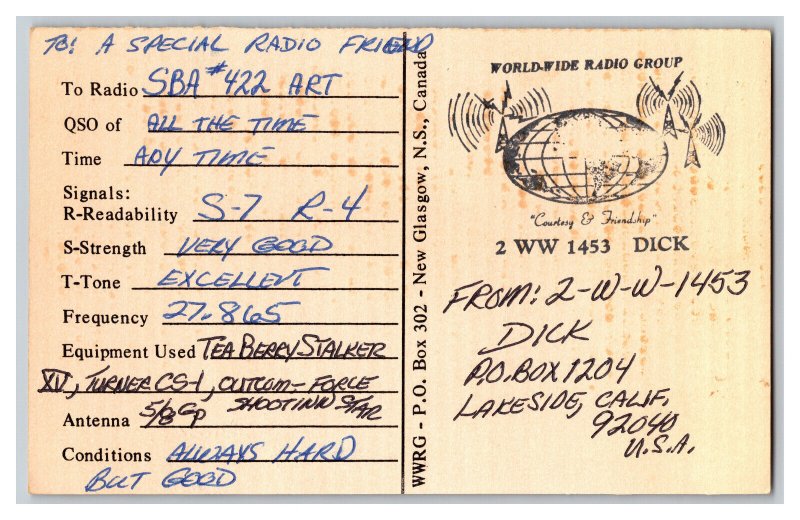 TO: A SPECIAL RADIO FRIEND
To Radio SBA #422 ART
QSO of ALL THE TIME
Time ANY TIME
Signals:
R-Readability S-7 R-4
S-Strength VERY GOOD
T-Tone EXCELLENT
Frequency 27.865
Equipment Used TEABERRY STALKER
XV, TURNER CS-1, OUTCOM-FORCE
Antenna 5/8 Gp SHOOTINN STAR
Conditions ALWAYS HARD
BUT GOOD
WWRG - P.O. Box 302 - New Glasgow, N.S., Canada
WORLD-WIDE RADIO GROUP
"Courtesy & Friendship"
2 WW 1453 DICK
FROM: 2-W-W-1453
DICK
P.O. BOX 1204
LAKESIDE, CALIF.
92040
U.S.A.